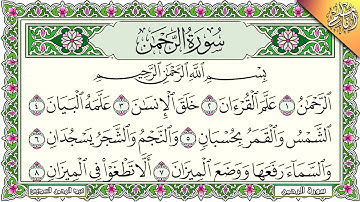 سُورَةُ الرَّحْمَٰن
بِسْمِ ٱللَّهِ ٱلرَّحْمَٰنِ ٱلرَّحِيمِ
ٱلرَّحْمَٰنُ ١ عَلَّمَ ٱلْقُرْءَانَ ٢ خَلَقَ ٱلْإِنسَٰنَ ٣ عَلَّمَهُ ٱلْبَيَانَ ٤
ٱلشَّمْسُ وَٱلْقَمَرُ بِحُسْبَانٍ ٥ وَٱلنَّجْمُ وَٱلشَّجَرُ يَسْجُدَانِ ٦
وَٱلسَّمَآءَ رَفَعَهَا وَوَضَعَ ٱلْمِيزَانَ ٧ أَلَّا تَطْغَوْا۟ فِى ٱلْمِيزَانِ ٨
سورة الرحمن